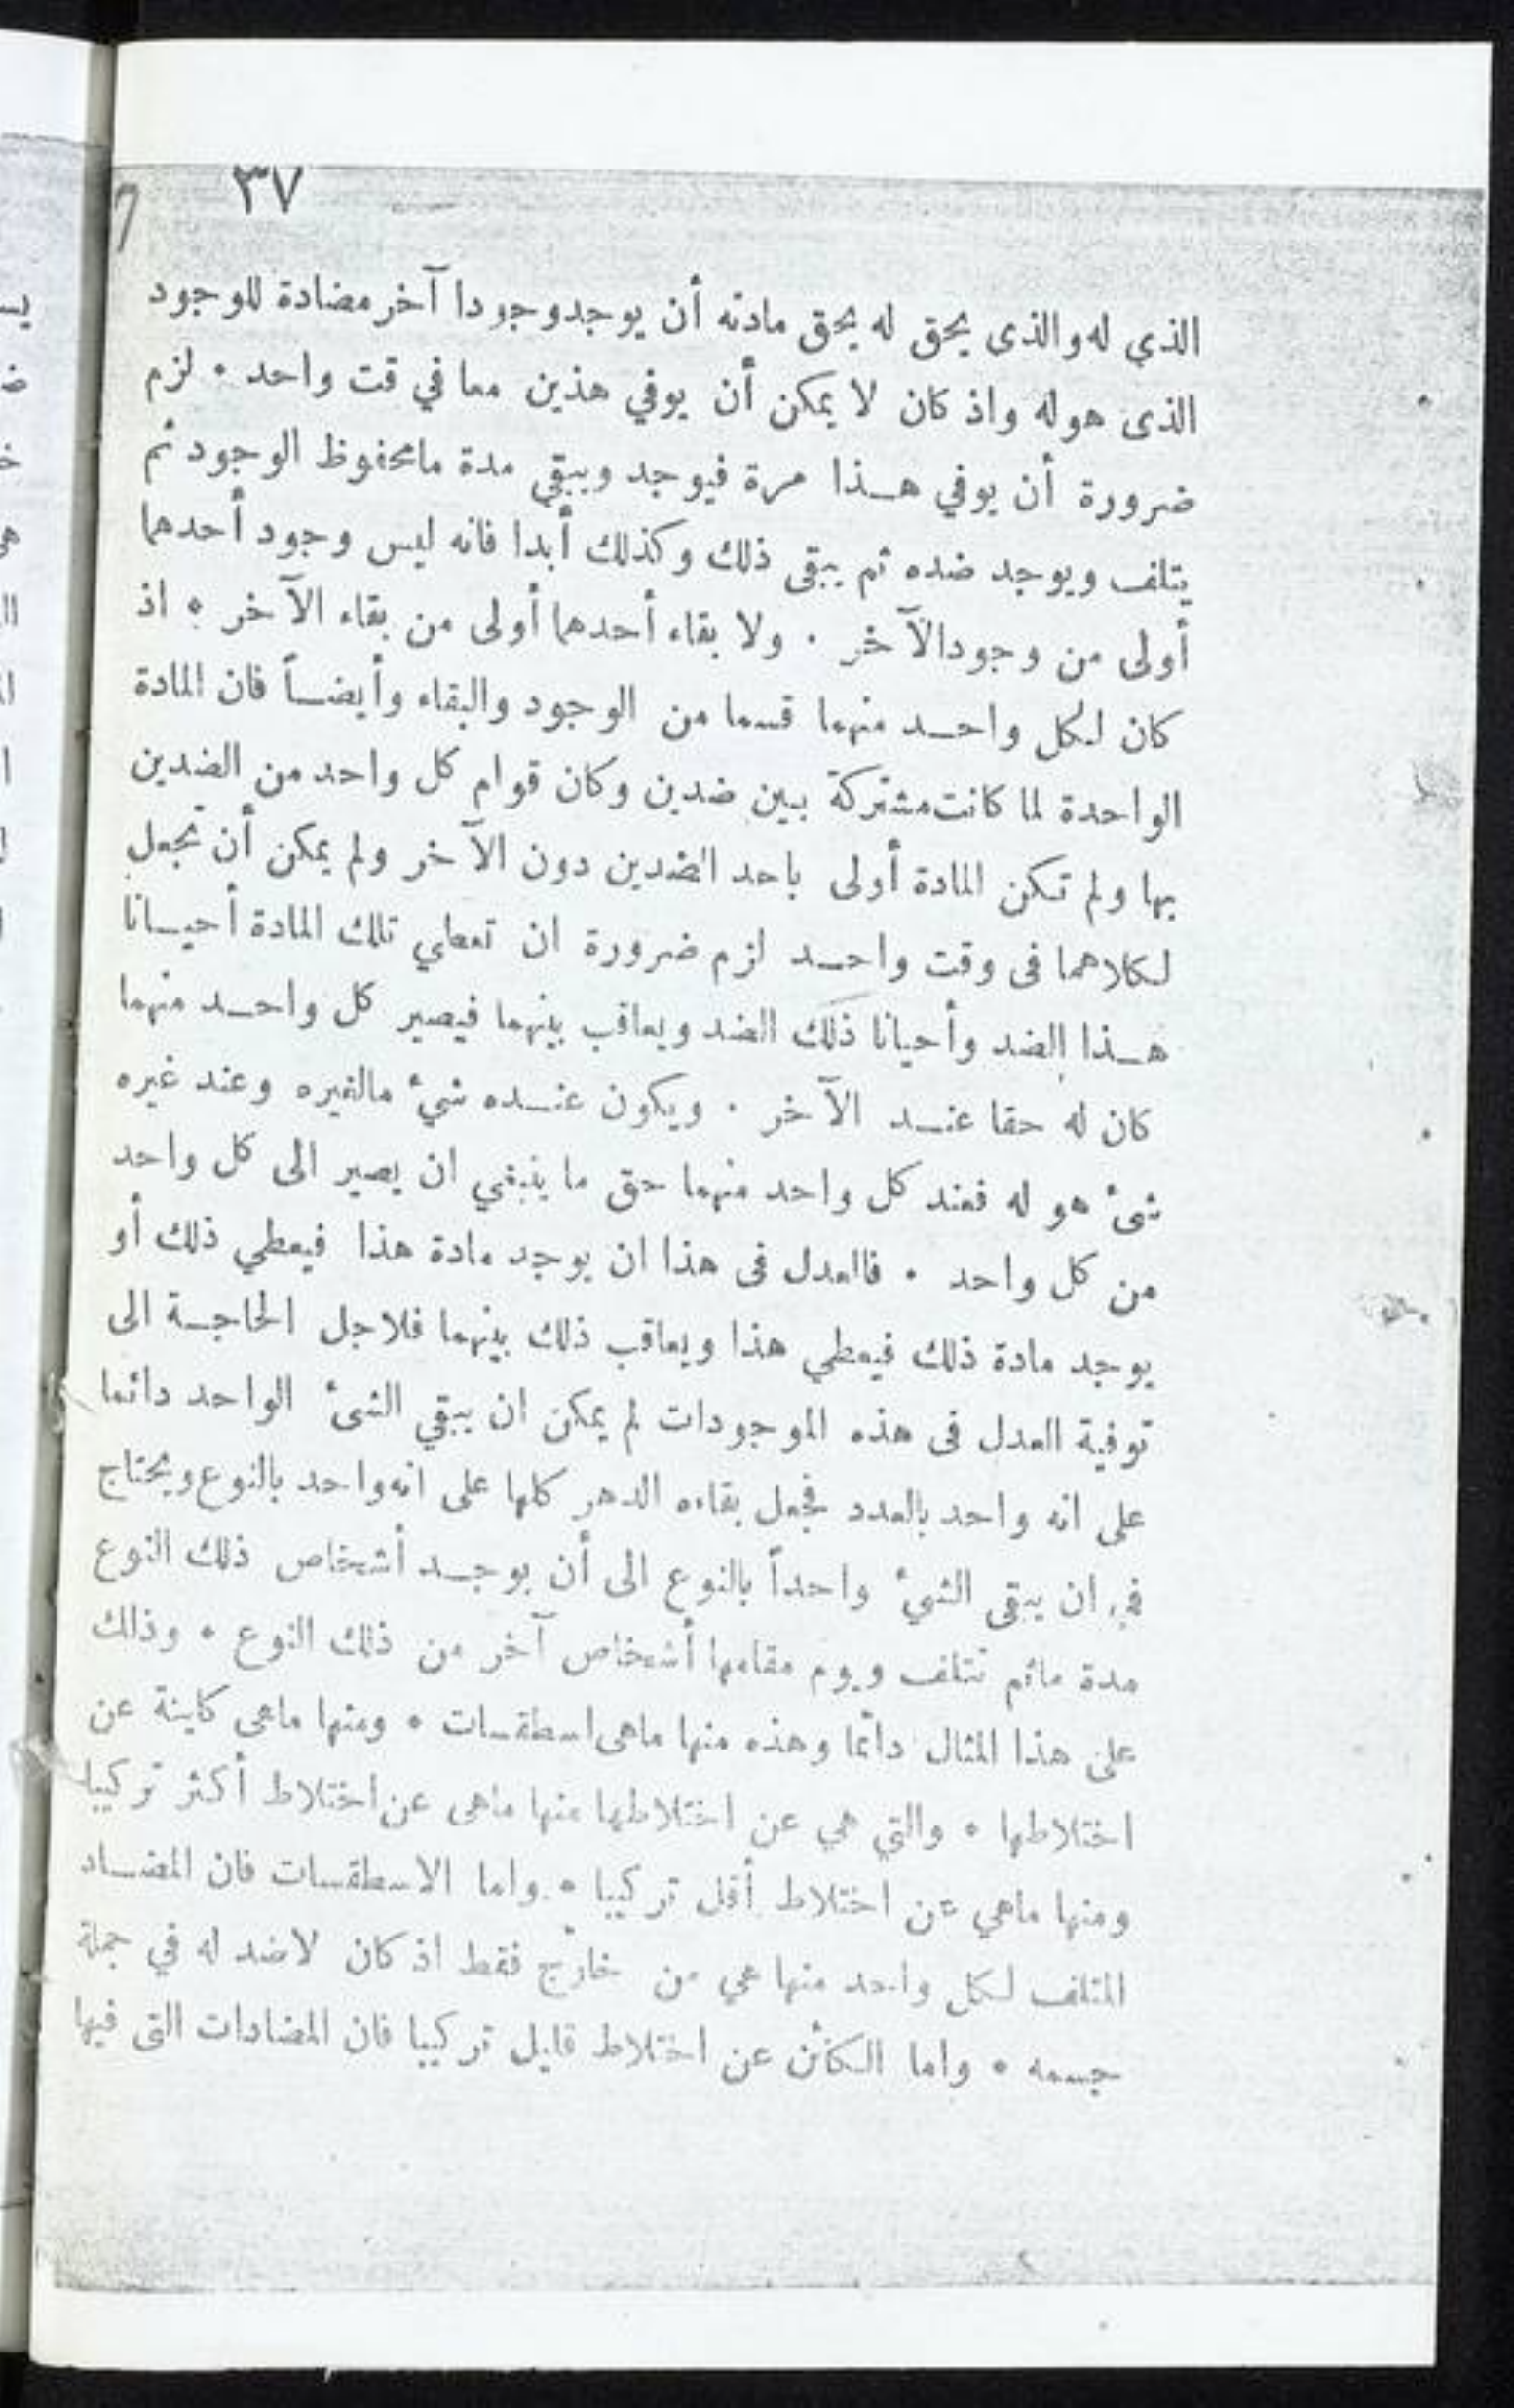 ٣٧
الذي له والذى يحق له يحق مادته أن يوجد وجودا آخر مضادة للوجود
الذى هو له واذ كان لا يمكن أن يوفي هذين معا في قت واحد • لزم
ضرورة أن يوفي هـذا مرة فيوجد ويبقي مدة ما محفوظ الوجود ثم
يتلف ويوجد ضده ثم يبقى ذلك وكذلك أبدا فانه ليس وجود أحدهما
أولى من وجود الآخر • ولا بقاء أحدهما أولى من بقاء الآخر • اذ
كان لكل واحـد منهما قسما من الوجود والبقاء وأيضـاً فان المادة
الواحدة لما كانت مشتركة بين ضدين وكان قوام كل واحد من الضدين
بها ولم تكن المادة أولى باحد الضدين دون الآخر ولم يمكن أن تجعل
لكلاهما فى وقت واحـد لزم ضرورة ان تعطي تلك المادة أحيـانا
هـذا الضد وأحيانا ذلك الضد ويعاقب بينهما فيصير كل واحـد منهما
كان له حقا عنـد الآخر • ويكون عنـده شيء ما لغيره وعند غيره
شىء هو له فعند كل واحد منهما حق ما ينبغي ان يصير الى كل واحد
من كل واحد • فالعدل فى هذا ان يوجد مادة هذا فيعطي ذلك أو
يوجد مادة ذلك فيعطي هذا ويعاقب ذلك بينهما فلاجل الحاجـة الى
توفية العدل فى هذه الموجودات لم يمكن ان يبقي الشىء الواحد دائما
على انه واحد بالعدد فجعل بقاءه الدهر كلها على انه واحد بالنوع ويحتاج
في ان يبقى الشيء واحداً بالنوع الى أن يوجـد أشخاص ذلك النوع
مدة ما ثم تتلف ويوم مقامها أشخاص آخر من ذلك النوع • وذلك
على هذا المثال دائما وهذه منها ماهى اسطقسات • ومنها ماهى كاينة عن
اختلاطها • والتي هي عن اختلاطها منها ماهى عن اختلاط أكثر تركيبا
ومنها ماهي عن اختلاط أقل تركيبا • واما الاسطقسات فان المضـاد
المتلف لكل واحد منها هي من خارج فقط اذ كان لاضد له في جملة
جسمه • واما الكائن عن اختلاط قليل تركيبا فان المضادات التى فيها